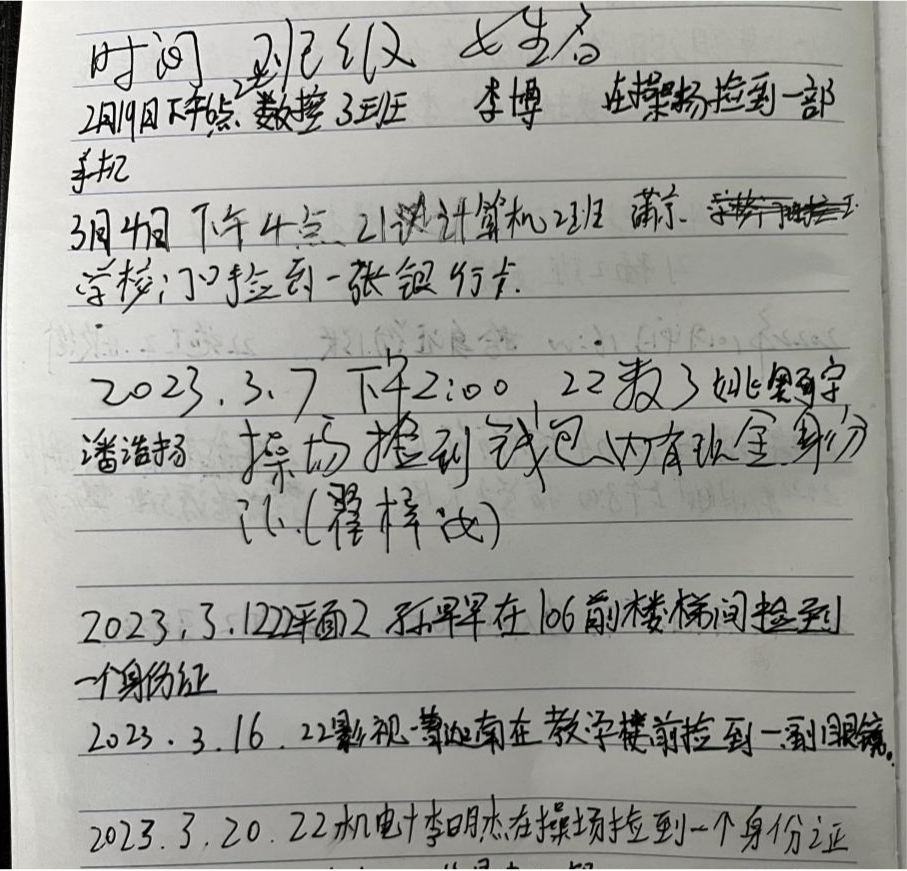 时间 班级 姓名
2月19日下午6点 22数控3班 李博 在操场捡到一部
手机
3月4日 下午4点 21 计算机2班 萧京
学校门口捡到一张银行卡.
2023.3.7 下午2:00 22数3 姚 宇
潘浩扬 操场捡到钱包内有现金身份
证.(翟梓 )
2023.3.12 22平面2 孙早早在106前楼梯间捡到
一个身份证
2023.3.16.22影视一 南在教学楼前捡到一副眼镜.
2023.3.20.22机电十李明杰在操场捡到一个身份证